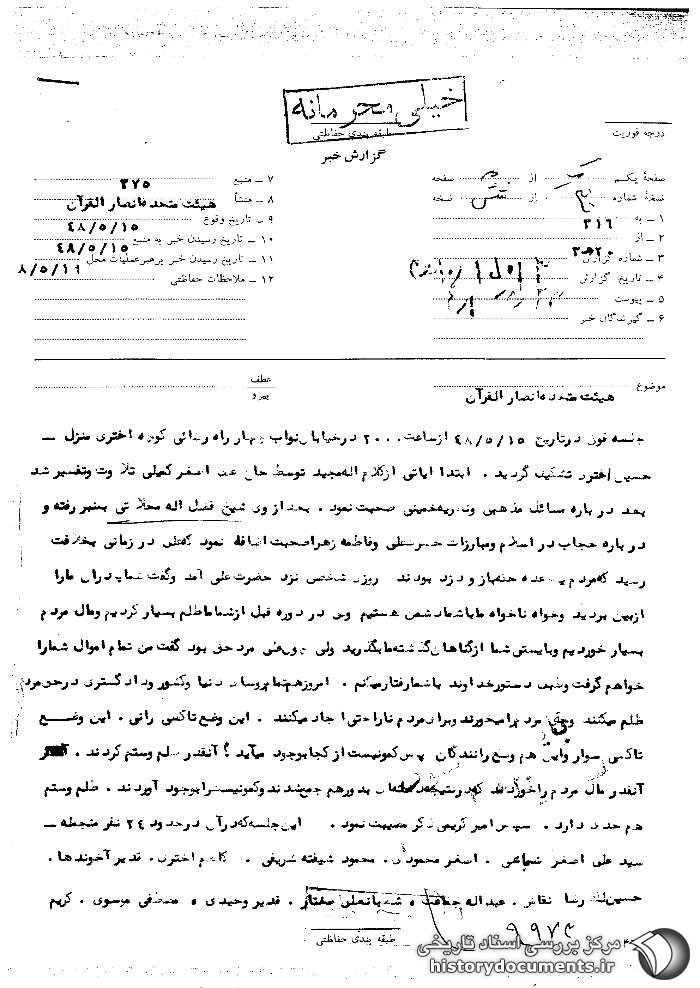 خیلی محرمانه
طبقه بندی حفاظتی
درجه فوریت
گزارش خبر
صفحهٔ یکم از صفحه
نسخهٔ شماره از نسخه
۱ ـ به ۳۱۶
۲ ـ از
۳ ـ شماره گزارش
۴ ـ تاریخ گزارش
۵ ـ پیوست
۶ ـ گیرندگان خبر
۷ ـ منبع ۳۷۵
۸ ـ منشأ هیئت متحده انصار القرآن
۹ ـ تاریخ وقوع ۴۸/۵/۱۵
۱۰ ـ تاریخ رسیدن خبر به منبع ۴۸/۵/۱۵
۱۱ ـ تاریخ رسیدن خبر برهبر عملیات محل ۸/۵/۱۶
۱۲ ـ ملاحظات حفاظتی
موضوع هیئت متحده انصار القرآن
عطف
جلسه فوق در تاریخ ۴۸/۵/۱۵ از ساعت ۲۰۰۰ در خیابان نواب چهار راه رضائی کوچه اختری منزل ـ
حسین اختری تشکیل گردید . ابتدا آیاتی از کلام اله مجید توسط حاج اصغر کمیلی تلاوت وتفسیر شد
بعد در باره مسائل مذهبی صحبت نمود . بعد از وی شیخ فضل اله محلاتی بمنبر رفته و
در باره حجاب در اسلام ومبارزات حضرت علی وفاطمه زهرا صحبت اضافه نمود که علی در زمانی بخلافت
رسید که مردم یک عده حقه باز و دزد بودند . روزی شخصی نزد حضرت علی آمد وگفت شما پدران مارا
ازبین بردید وخواه ناخواه ما باشما دشمن هستیم ولی در دوره قبل از شما ما ظلم بسیار کردیم ومال مردم
بسیار خوردیم وبایستی شما از گناهان گذشته ما بگذرید ولی چون علی مرد حق بود گفت من تمام اموال شمارا
خواهم گرفت وطبق دستور خداوند باشما رفتار میکنم . امروز هم تمام روسای دنیا وکشور ودادگستری در حق مردم
ظلم میکنند وحق مردم را میخورند وبرای مردم ناراحتی ایجاد میکنند . این وضع تاکسی رانی . این وضع
تاکسی سوار واین هم وضع رانندگان پس کمونیست از کجا بوجود میآید ؟ آنقدر ظلم وستم کردند .
آنقدر مال مردم را خوردند که در نتیجه بدور هم جمع شدند وکمونیست را بوجود آوردند . ظلم وستم
هم حدی دارد . سپس امیر کریمی ذکر مصیبت نمود . این جلسه که در آن در حدود ۲۴ نفر منجمله ـ
سید علی اصغر شجاعی . اصغر محمودی . محمود شیفته شریفی . کاظم اختری . قدیر آخوندها .
حسین رضا نقاش . عبداله شعبانعلی . قدیر وحیدی . مصطفی موسوی . کریم
طبقه بندی حفاظتی
۹۹۷۴
مرکز بررسی اسناد تاریخی
historydocuments.ir